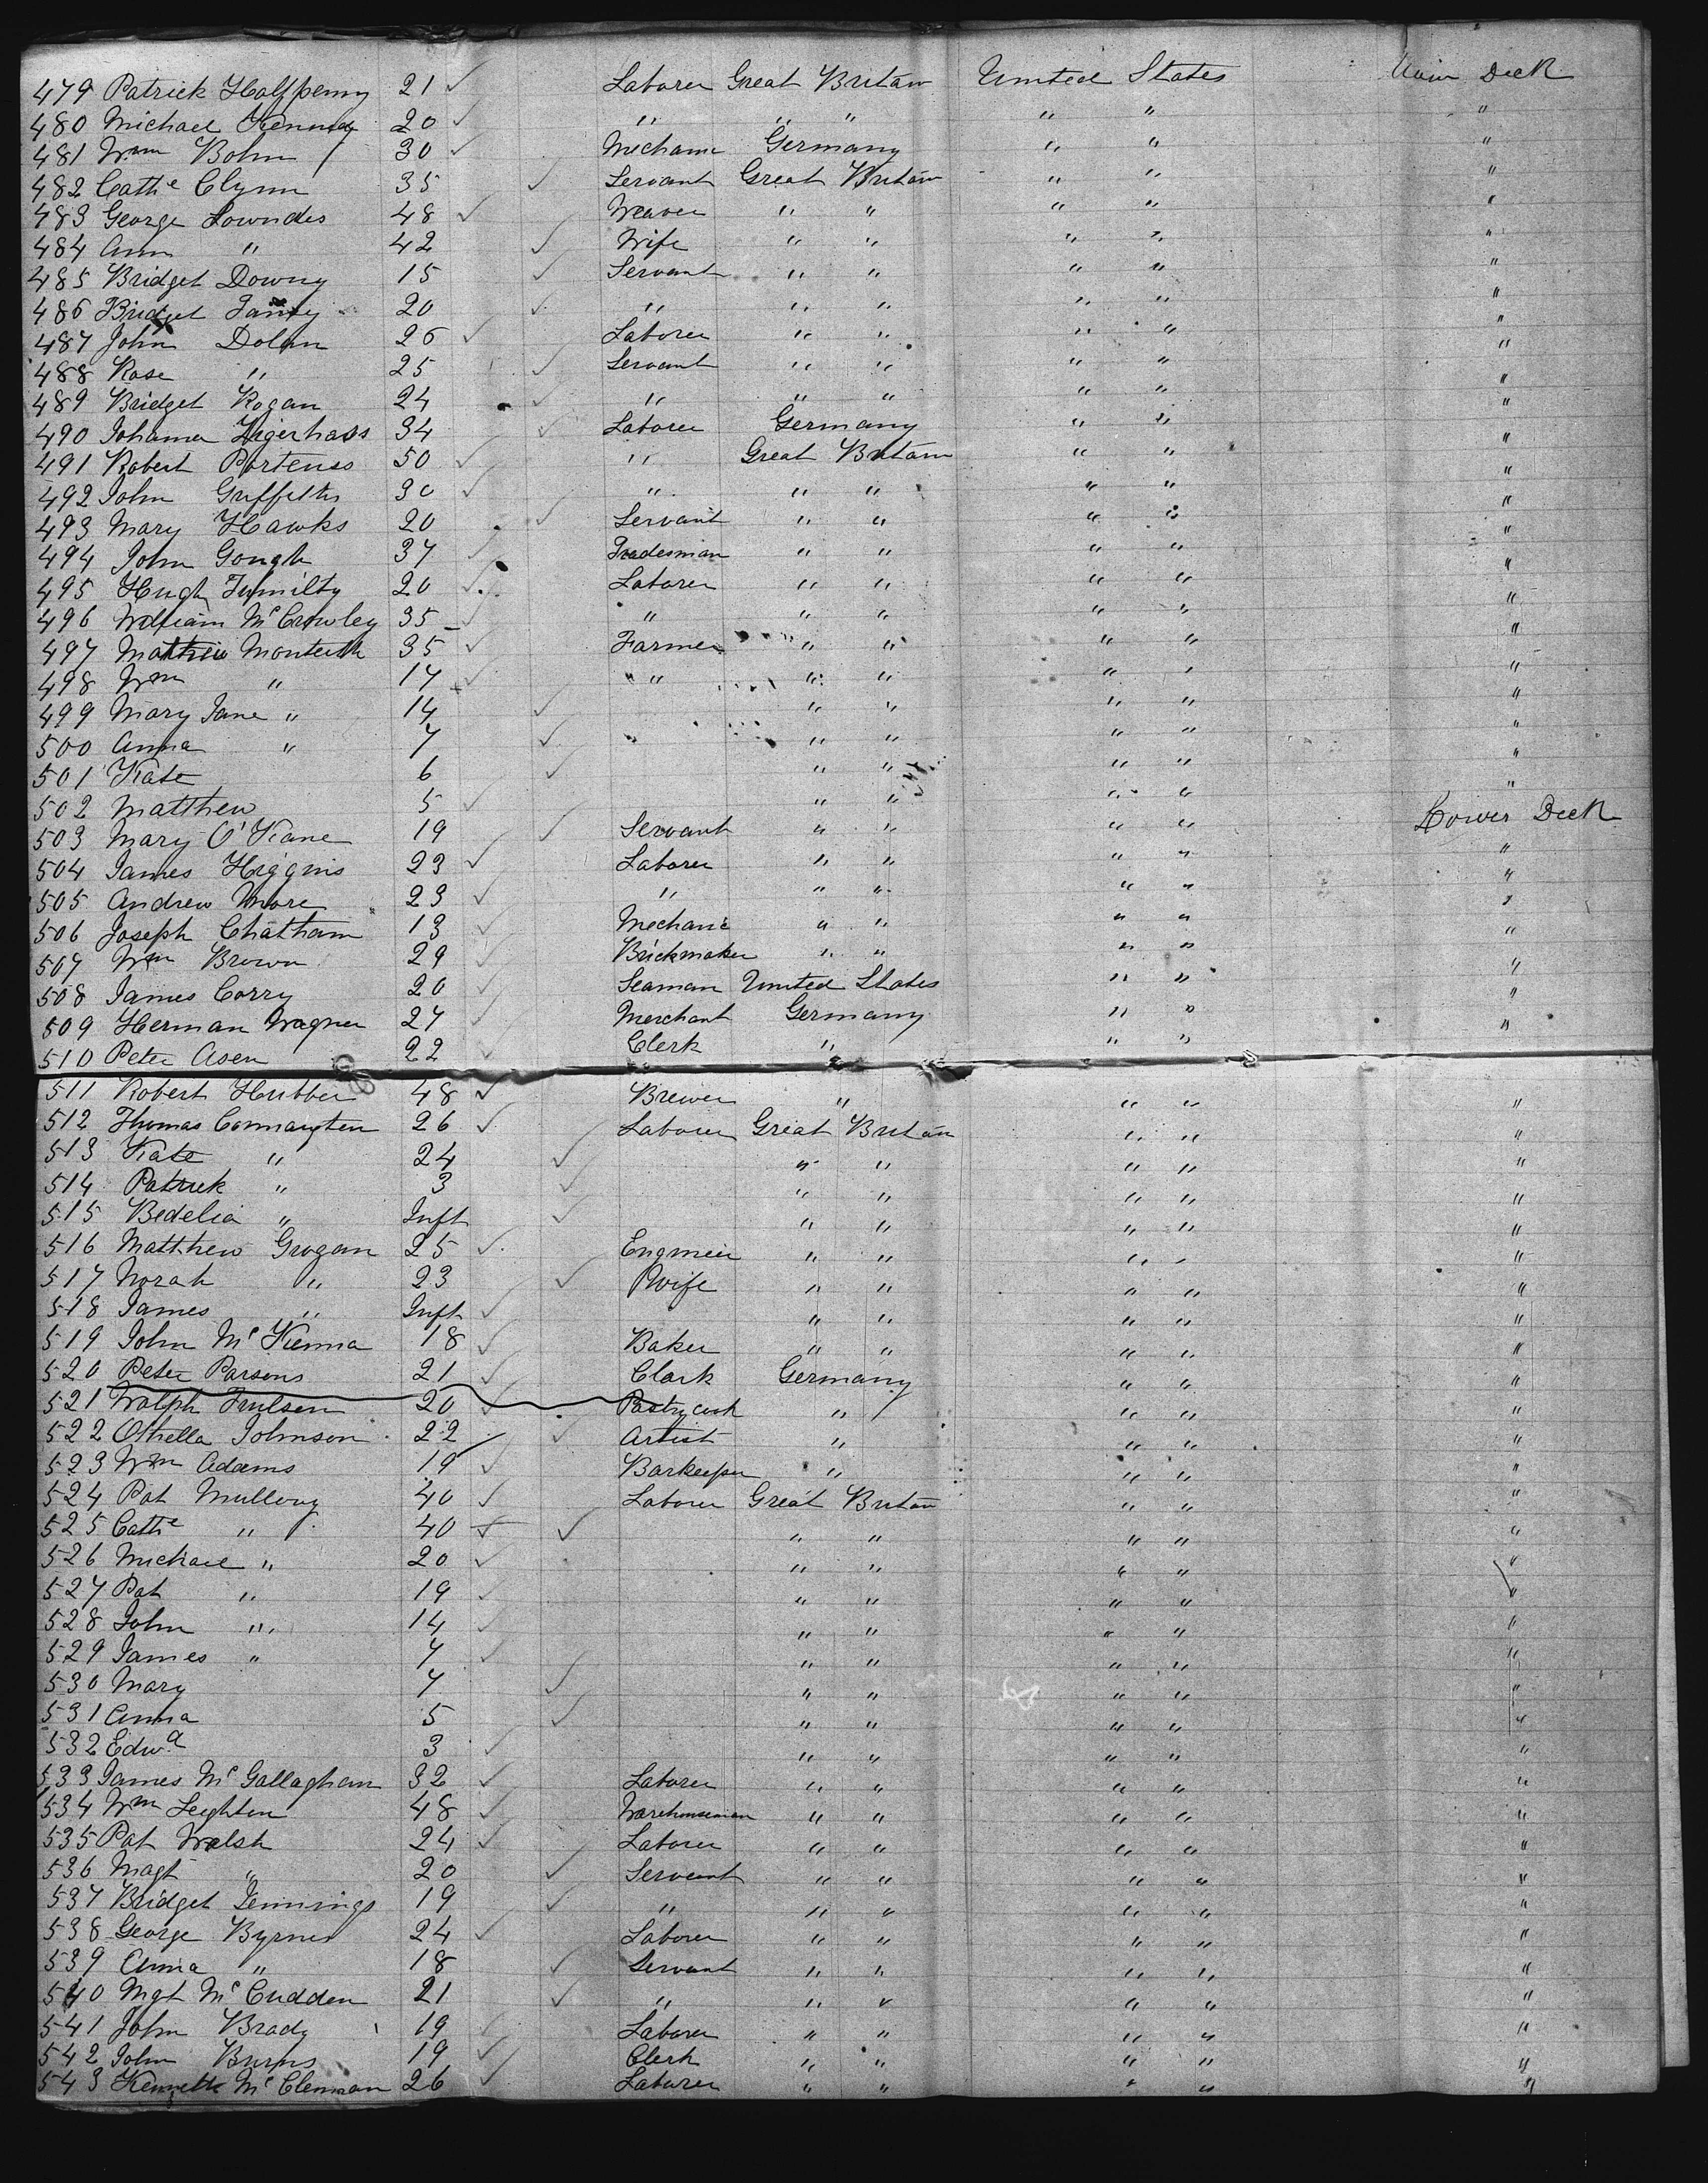 479 Patrick Halfpenny 21 ✓ Laborer Great Britain United States Main Deck
480 Michael Kenndy 20 ✓ " " " " " "
481 Wm Bohm 30 ✓ Mechanic Germany " " "
482 Cathe Clynn 35 ✓ Servant Great Britain " " "
483 George Lowndes 48 ✓ Weaver " " " " "
484 Ann " 42 ✓ Wife " " " " "
485 Bridget Downy 15 ✓ Servant " " " " "
486 Bridget 20 ✓ " " " " " "
487 John Dolan 26 ✓ Laborer " " " " "
488 Rose " 25 ✓ Servant " " " " "
489 Bridget Rogan 24 ✓ " " " " " "
490 Johanna 34 ✓ Laborer Germany " " "
491 Robert Portenss 50 ✓ " Great Britain " " "
492 John Griffiths 30 ✓ " " " " " "
493 Mary Hawks 20 ✓ Servant " " " " "
494 John Gough 37 ✓ Tradesman " " " " "
495 Hugh Tumilty 20 ✓ Laborer " " " " "
496 William McCrowley 35 ✓ " " " " " "
497 Matthew Monteith 35 ✓ Farmer " " " " "
498 Wm " 17 ✓ " " " " " "
499 Mary Jane " 14 ✓ " " " " "
500 Anna " 7 ✓ " " " " " "
501 Kate 6 ✓ " " " " "
502 Matthew 5 ✓ " " " " "
503 Mary O'Kane 19 ✓ Servant " " " " Lower Deck
504 James Higgins 23 ✓ Laborer " " " " "
505 Andrew More 23 ✓ " " " " " "
506 Joseph Chatham 13 ✓ Mechanic " " " " "
507 Wm Brown 29 ✓ Brickmaker " " " " "
508 James Corry 20 ✓ Seaman United States " " "
509 Herman Wagner 27 ✓ Merchant Germany " " "
510 Peter Asen 22 ✓ Clerk " " "
511 Robert Hubber 48 ✓ Brewer " " " "
512 Thomas Connaughten 26 ✓ Laborer Great Britain " " "
513 Kate " 24 ✓ " " " " "
514 Patrick " 3 ✓ " " " " "
515 Bedelia " Inft ✓ " " " " "
516 Matthew Grogan 25 ✓ Engineer " " " " "
517 Norah " 23 ✓ Wife " " " " "
518 James " Inft ✓ " " " " "
519 John McKenna 18 ✓ Baker " " " " "
520 Peter Parsons 21 ✓ Clark Germany " " "
521 Wolph 20 ✓ Pastrycook " " " "
522 Othella Johnson 22 ✓ Artist " " " "
523 Wm Adams 19 ✓ Barkeeper " " " "
524 Pat Mullony 40 ✓ Laborer Great Britain " " "
525 Cathe " 40 ✓ " " " " "
526 Michael " 20 ✓ " " " " "
527 Pat " 19 ✓ " " " " "
528 John " 14 ✓ " " " " "
529 James " 7 ✓ " " " " "
530 Mary 7 ✓ " " " " "
531 Anna 5 ✓ " " " " "
532 Edwd 3 ✓ " " " " "
533 James McGallaghan 32 ✓ Laborer " " " " "
534 Wm Leighton 48 ✓ Warehouseman " " " " "
535 Pat Walsh 24 ✓ Laborer " " " " "
536 Magt " 20 ✓ Servant " " " " "
537 Bridget Jennings 19 ✓ " " " " " "
538 George Byrnes 24 ✓ Laborer " " " " "
539 Anna " 18 ✓ Servant " " " " "
540 Mgt McCudden 21 ✓ " " " " " "
541 John Brady 19 ✓ Laborer " " " " "
542 John Burns 19 ✓ Clerk " " " " "
543 Kenneth McClennan 26 ✓ Laborer " " " " "